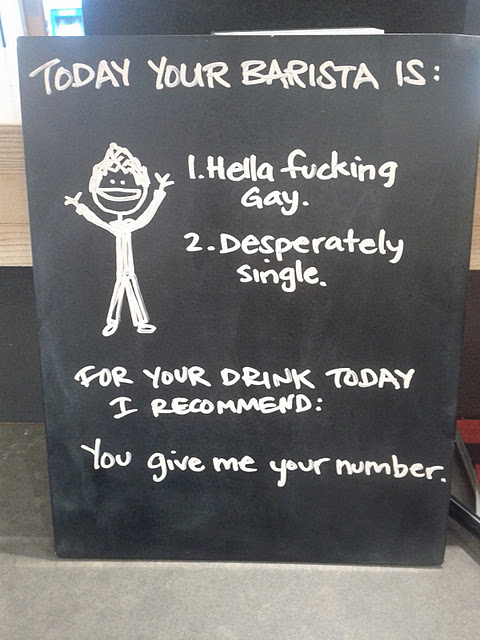 TODAY YOUR BARISTA IS:
1. Hella fucking
Gay.
2. Desperately
single.
FOR YOUR DRINK TODAY
I RECOMMEND:
You give me your number.